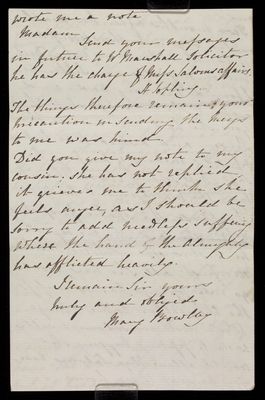 wrote me a note
Madam
Send your messages
in future to W Marshall Solicitor
he has the charge of Miss Saloms affairs
H
The things therefore remaining your
precaution in sending the Meys
to me was kind.
Did you give my note to my
cousin. She has not replied
it grieves me to think she
feels anger, as I should be
sorry to add needless suffering
where the hand of the Almighty
has afflicted heavily.
I remain Sir yours
truly and obliged
Mary Bowlby